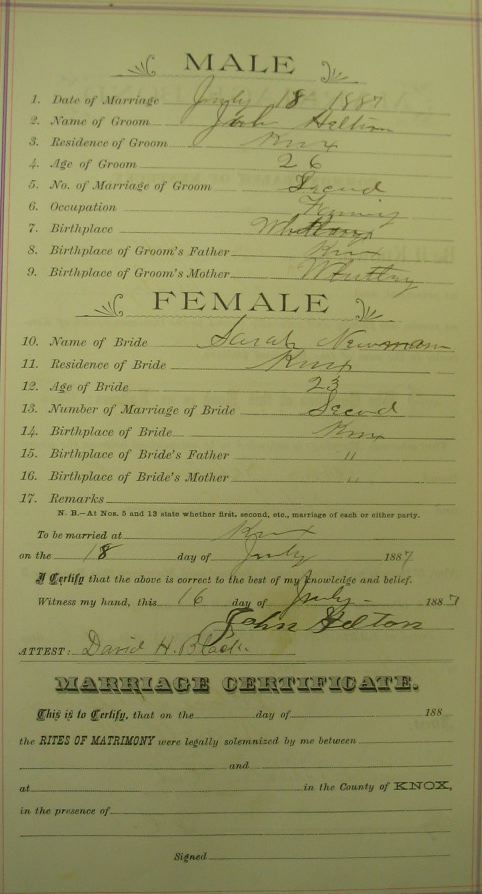 MALE
1. Date of Marriage July 18 1887
2. Name of Groom John Helton
3. Residence of Groom Knox
4. Age of Groom 26
5. No. of Marriage of Groom Second
6. Occupation Farming
7. Birthplace
8. Birthplace of Groom's Father Knox
9. Birthplace of Groom's Mother Whitley
FEMALE
10. Name of Bride Sarah Newman
11. Residence of Bride Knox
12. Age of Bride 23
13. Number of Marriage of Bride Second
14. Birthplace of Bride Knox
15. Birthplace of Bride's Father "
16. Birthplace of Bride's Mother "
17. Remarks
N. B.—At Nos. 5 and 13 state whether first, second, etc., marriage of each or either party.
To be married at Knox
on the 18 day of July 1887
I Certify that the above is correct to the best of my knowledge and belief.
Witness my hand, this 16 day of July 1887
John Helton
ATTEST: David H. Black
MARRIAGE CERTIFICATE.
This is to Certify, that on the day of 188
the RITES OF MATRIMONY were legally solemnized by me between
and
at in the County of KNOX,
in the presence of
Signed